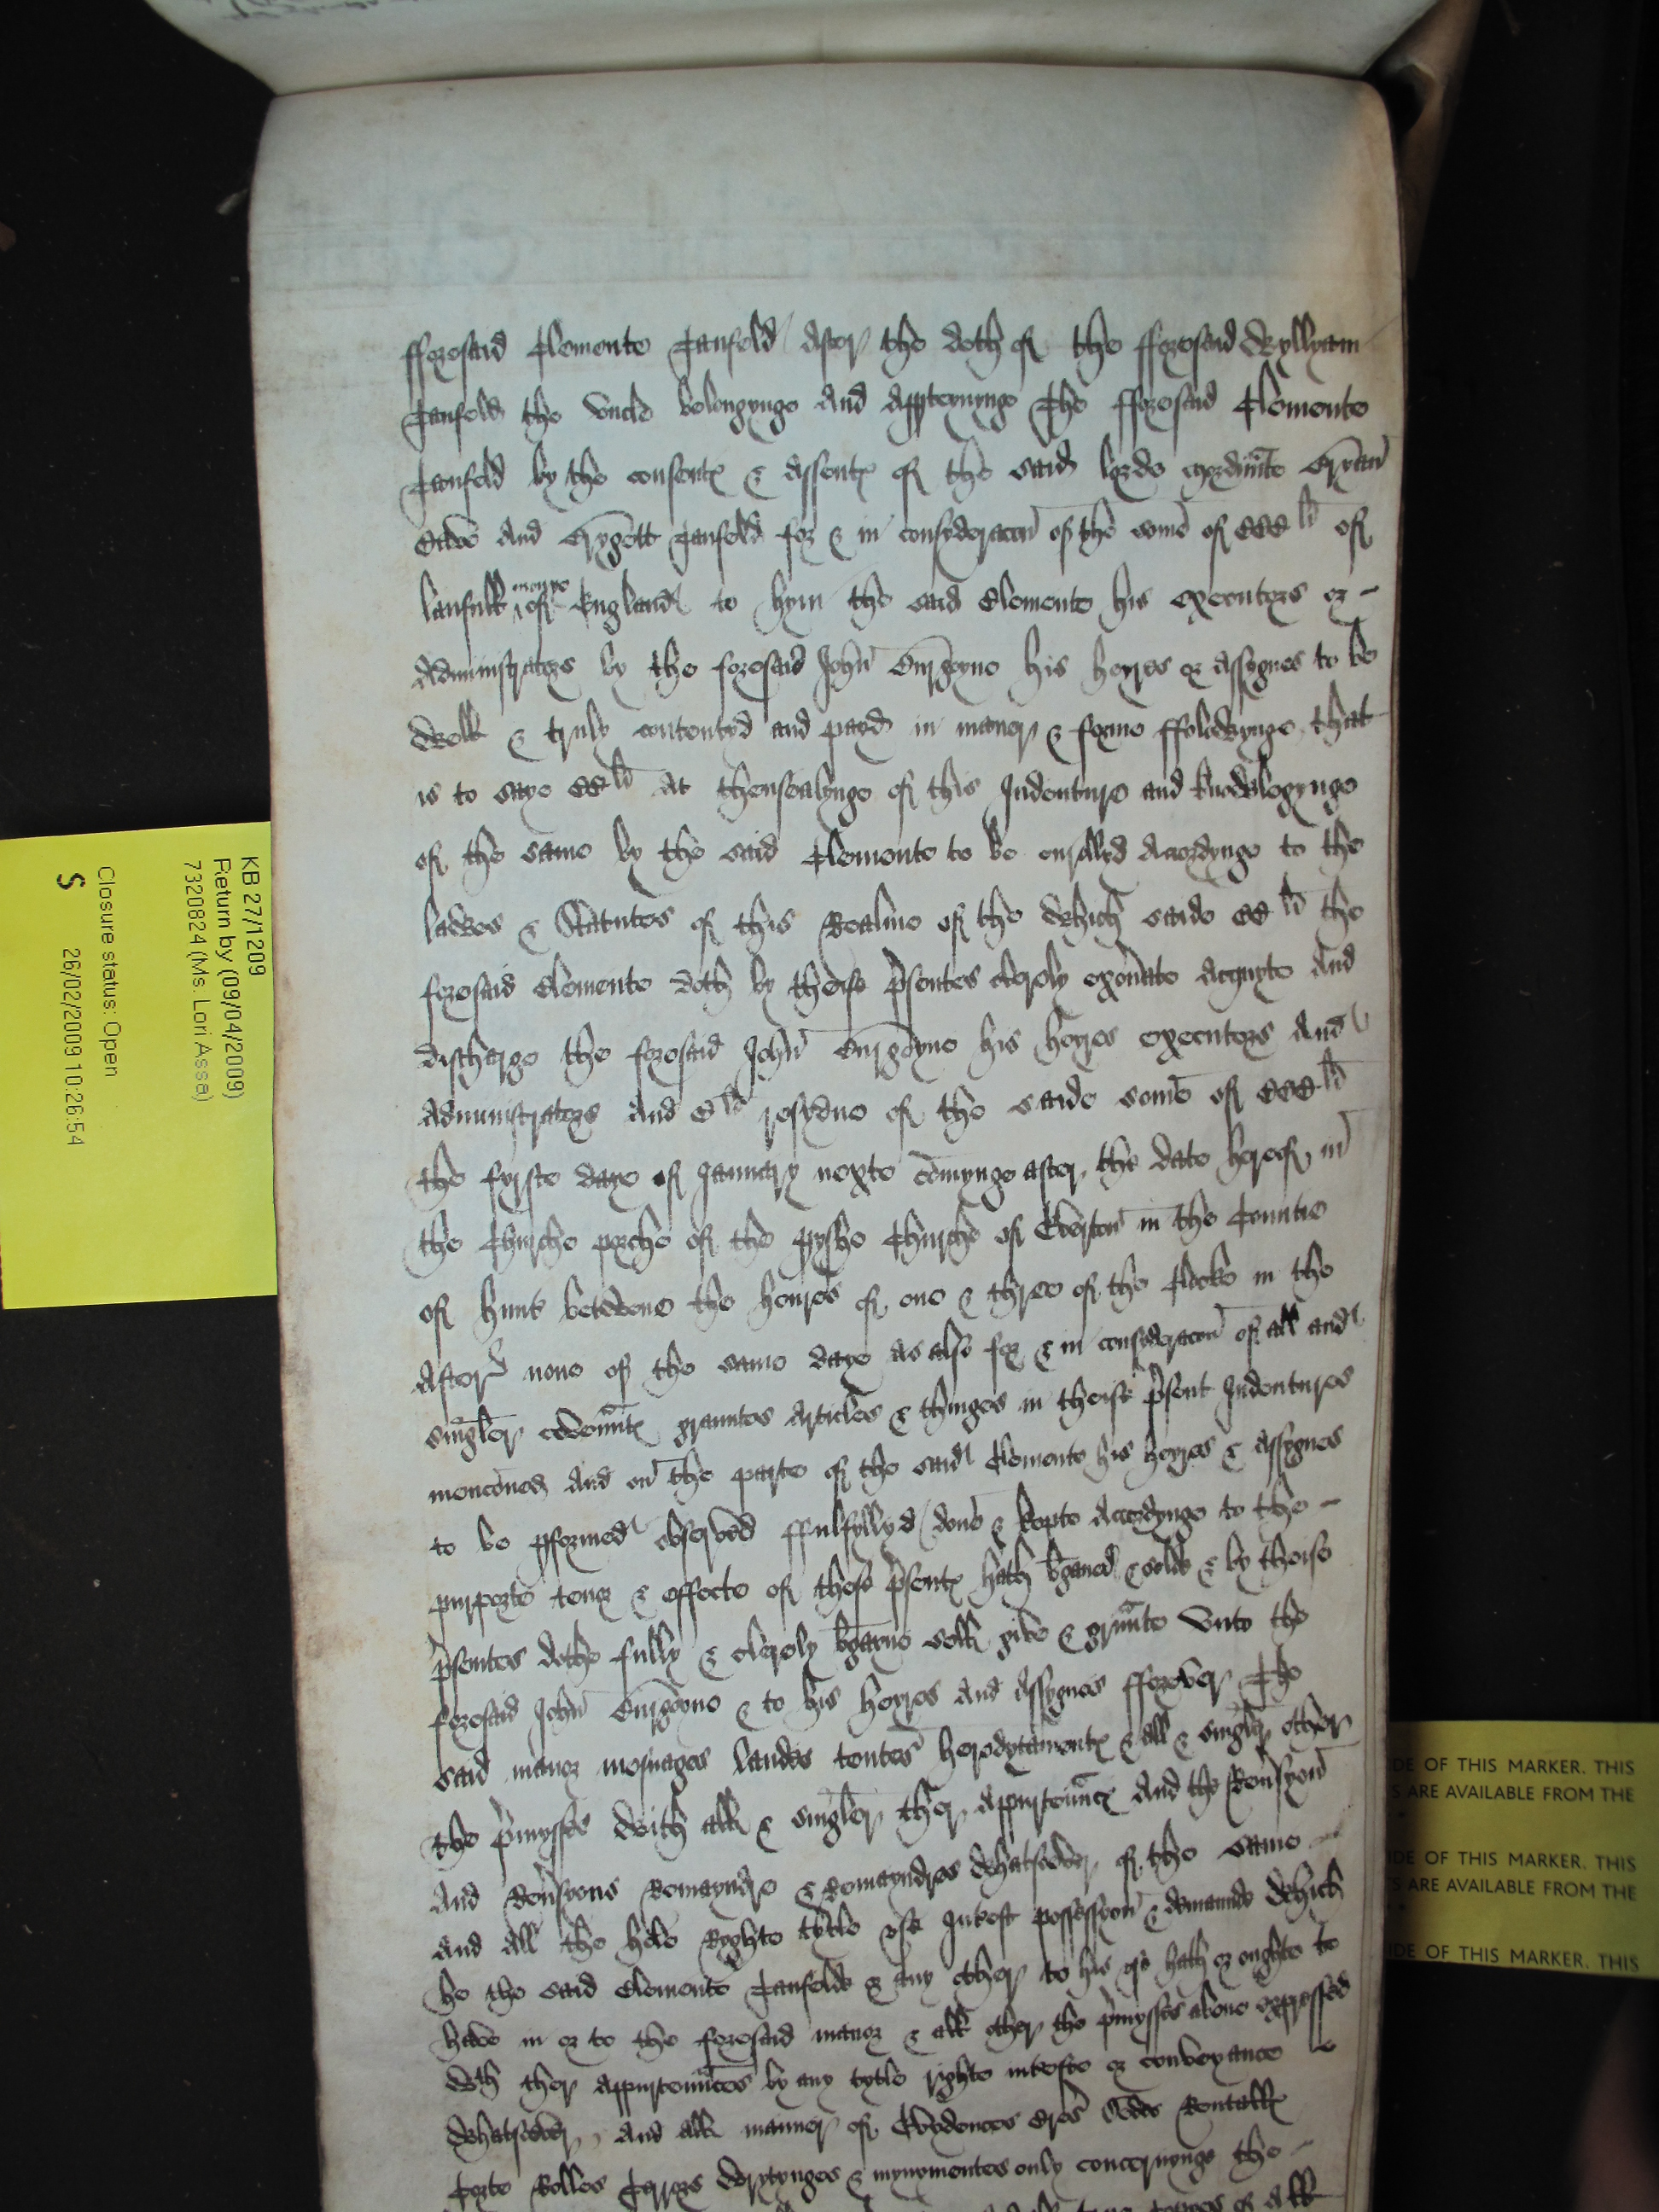 fforesaid Clemente Tanfeld after the deth of the fforesaid Wyllyam
Tanfeld the Uncle belongynge And Apperteynynge The fforesaid Clemente
Tanfeld by the consent & Assent of the said lorde mordunte
And Brygett Tanfeld for & in consyderacon of the some of CCC li of
laufull monye of England to hym the said Clemente his executors or
Administrators by the foresaid John Burgoyne his heyres or Assygnes to be
well & truly contentyd and payd in maner & forme ffolowynge that
is to saye CC li At thensealynge of this Indenture and knowlegynge
of the same by the said Clemente to be enrollyd Accordynge to the
lawes & Statutes of this Realme of the which saide CC li the
foresaid Clemente doth by theise psentes clerely exonate Acquyte And
discharge the foresaid John Burgoyne his heyres executors And
Administrators And C li resydue of the saide some of CCC li
the fyrste daye of January nexte comynge after the date hereof in
the Churche porche of the pyshe Churche of Everton in the Countie
of Hunt betwene the houres of one & three of the Clocke in the
After none of the same daye as also for & in consideracon of all and
singler covennt grauntes Articles & thinges in theise psent Indentures
menconed And on the parte of the said Clemente his heyres & Assygnes
to be pformed observed ffulfyllyd done & kepte Accordynge to the
purporte tenor & effecte of these psent hath bganed & solde & by theise
psentes dothe fully & clerely bgayne sell give & grunte Unto the
foresaid John Burgoyne & to his heyres And Assygnes fforever The
said manor mesuages landes tentes heredytament & all & singler other
the pmysses With all & singler ther Appurtennc And the Revsyon
And Revsyons Remayndre & Remayndres Whatsoever of the same
And All the hole Ryghte tytle use Intest possessyon & demaunde Which
he the said Clemente Tanfelde or Any other to his use hath or oughte to
have in or to the foresaid manor & all other the pmysses above expressed
Wth ther Appurtennces by any tytle righte intereste or conveyance
Whatsoever And all manner of Evydences Dedes Rentall
Corte Rolles Terrors Wrytynges & mynymentes only concernynge the
KB 27/1209
Return by (09/04/2009)
7320824 (Ms. Lori Assa)
Closure status: Open
S 26/02/2009 10:26:54
IDE OF THIS MARKER. THIS
S ARE AVAILABLE FROM THE
IDE OF THIS MARKER. THIS
S ARE AVAILABLE FROM THE
IDE OF THIS MARKER. THIS